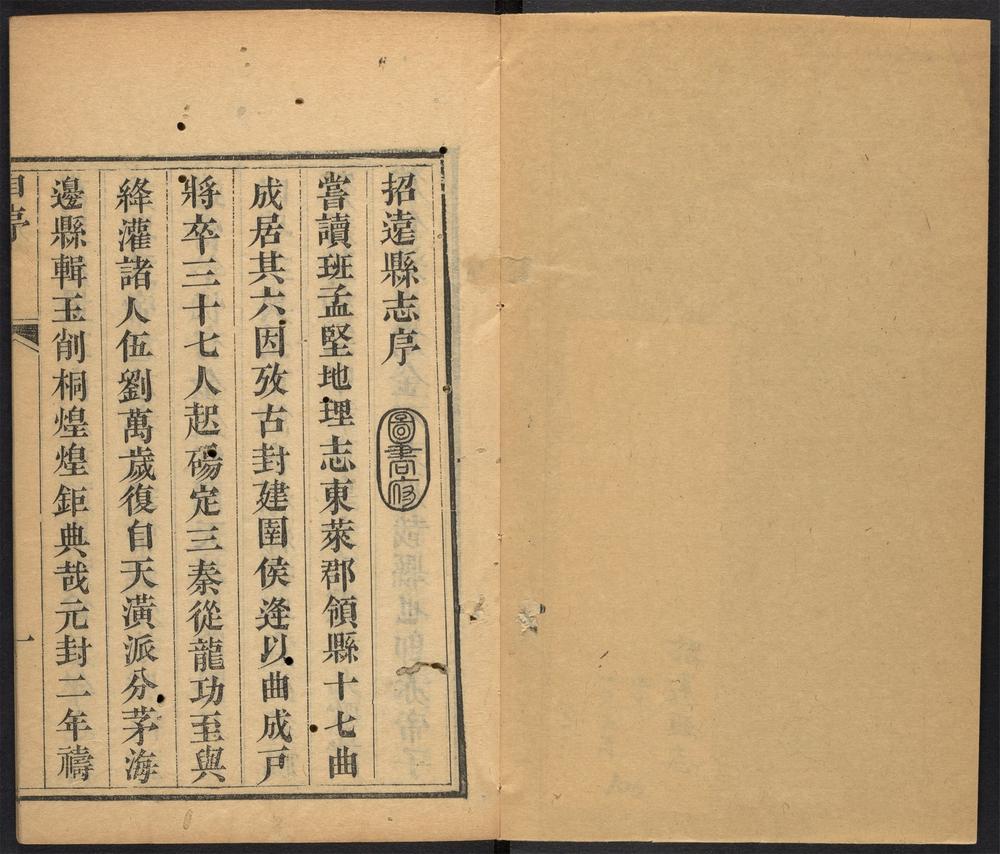 招遠縣志序
圖書府
嘗讀班孟堅地理志東萊郡領縣十七曲
成居其六因攷古封建圉侯逄以曲成戸
將卒三十七人起碭定三秦從龍功至與
絳灌諸人伍劉萬歲復自天潢派分茅海
邊縣輯玉削桐煌煌鉅典哉元封二年禱
自序
一